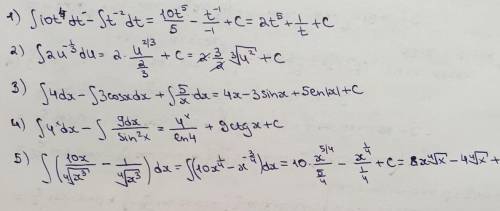 1) ∫10t⁴dt - ∫t⁻²dt = 10t⁵/5 - t⁻¹/-1 + C = 2t⁵ + 1/t + C
2) ∫2u^(-1/3)du = 2 · u^(2/3)/(2/3) + C = 2·3/2 ∛u² + C
3) ∫4dx - ∫3cosxdx + ∫5/x dx = 4x - 3sinx + 5ln|x| + C
4) ∫4ˣdx - ∫9dx/sin²x = 4ˣ/ln4 + 9ctgx + C
5) ∫(10x/∜x³ - 1/∜x³)dx = ∫(10x^(1/4) - x^(-3/4))dx = 10 · x^(5/4)/(5/4) - x^(1/4)/(1/4) + C = 8x∜x - 4∜x +